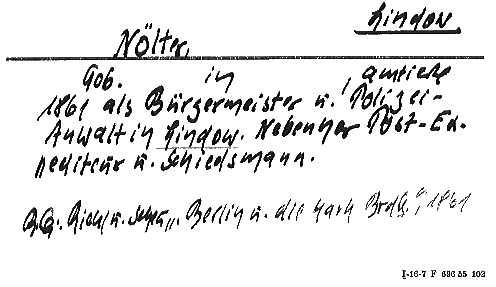 Lindow
Nölte,
Geb. in , amtierte
1861 als Bürgermeister u. Polizei-
Anwalt in Lindow. Nebenher Post-Ex-
pediteur u. Schiedsmann.
Riehl u. "Berlin u. die Mark Brdbg", 1861
I-16-7 F 596 55 102